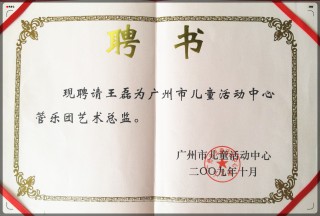 聘书
现聘请王磊为广州市儿童活动中心
管乐团艺术总监。
广州市儿童活动中心
二〇〇九年十月